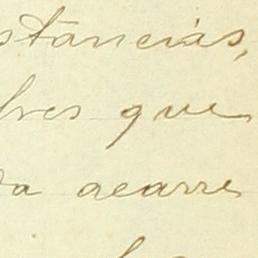 stâncias,
lves que
da acarre